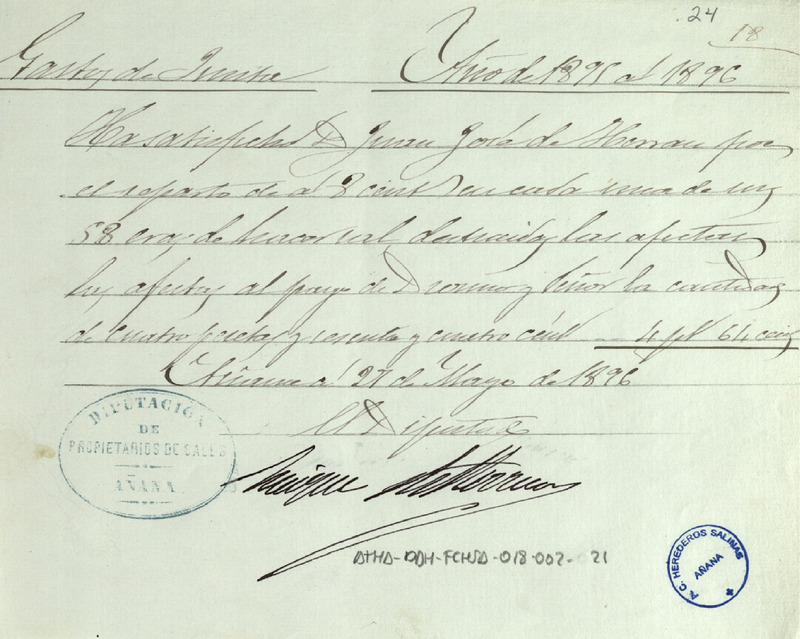 .24
18
Gastos de Junta Año de 1895 al 1896
Ha satisfecho D Juan José de Herran por
el reparto de a 8 cent en cada una de sus
58 eras de hacer sal, deducidas las afectas
las afectas al pago de Diezmos y Señor la cantidad
de cuatro pesetas y sesenta y cuatro cént 4 pt 64 cen
Añana a 27 de Mayo de 1896
El Diputado
Enrique de Herran
DIPUTACIÓN
DE
PROPIETARIOS DE SALES
AÑANA
ATHA-DAH-FCHSA-018-002- 21
C. HEREDEROS SALINAS
AÑANA